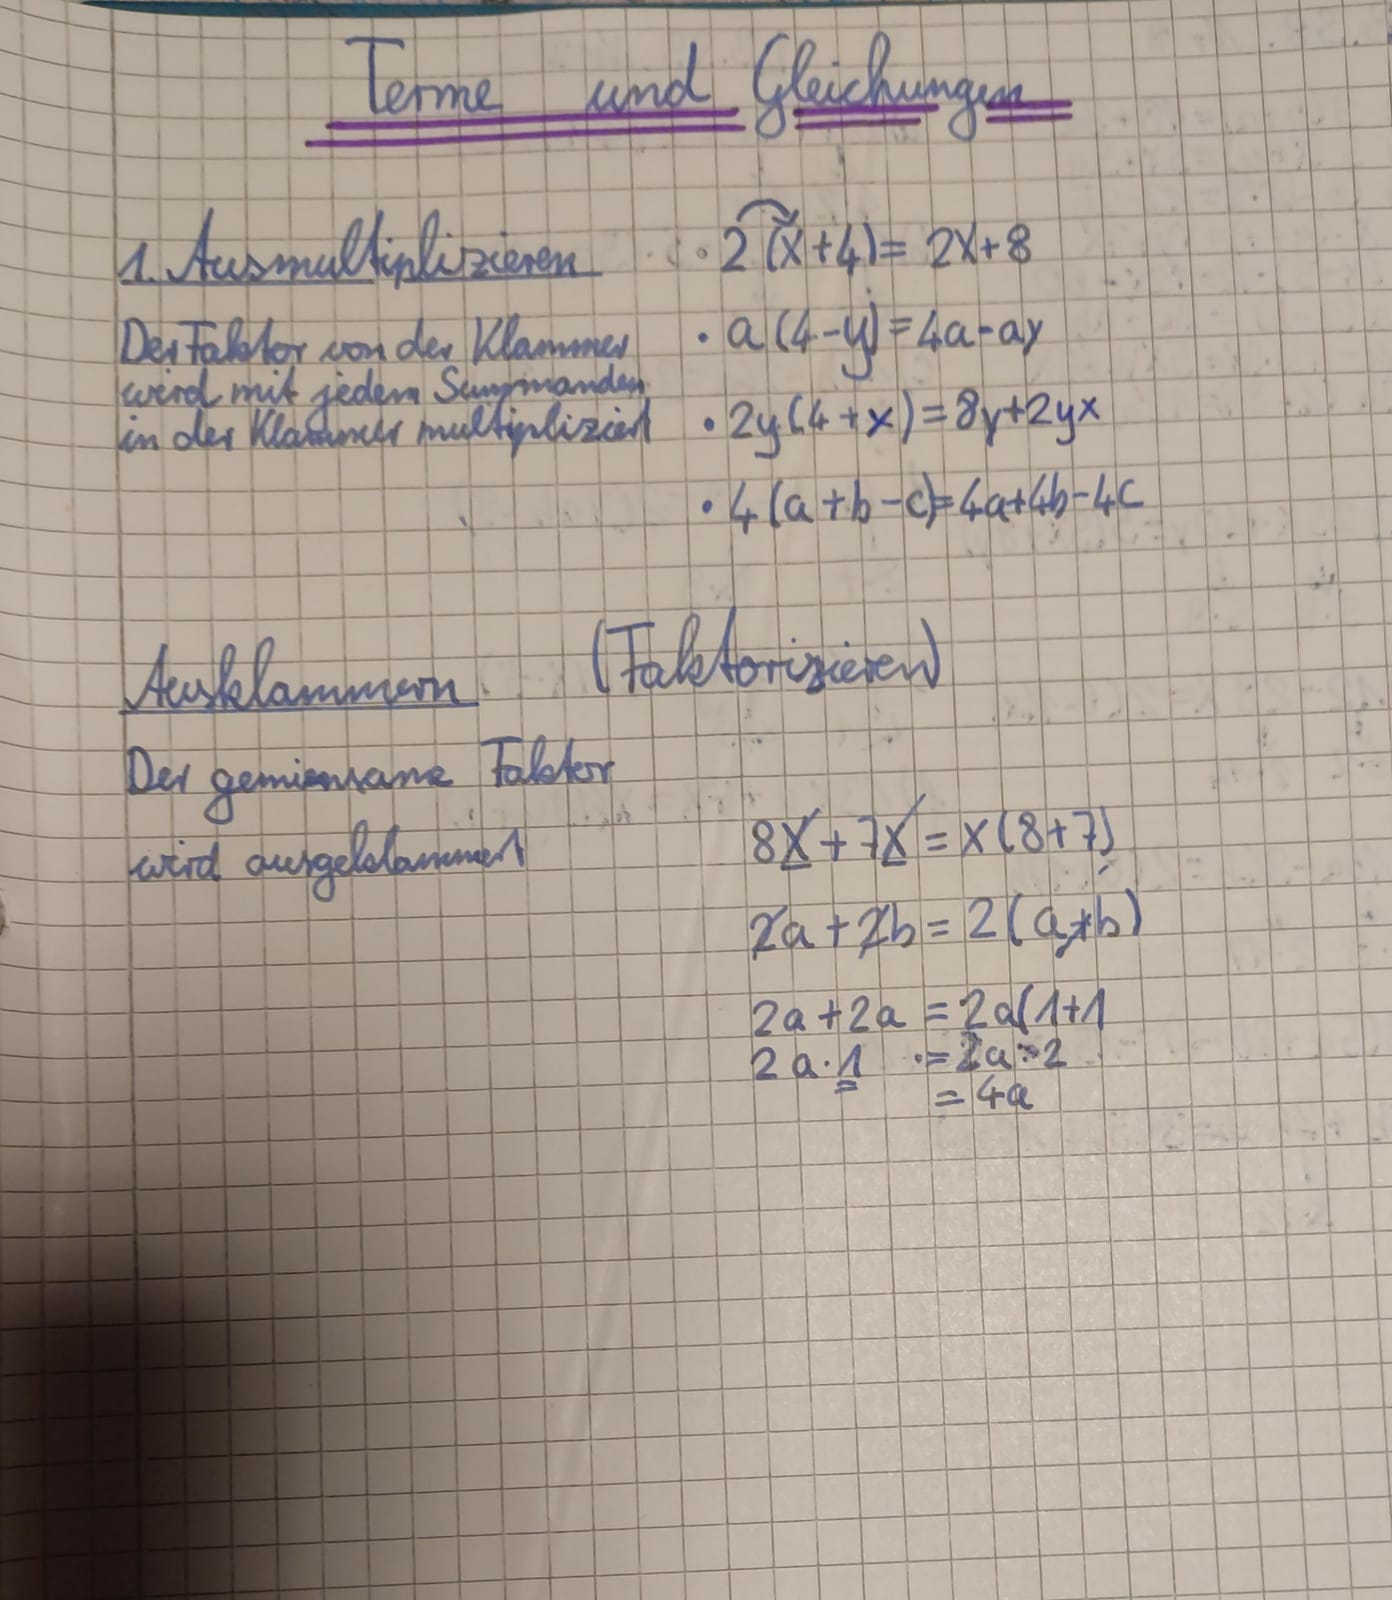 Terme und Gleichungen
1. Ausmultiplizieren
Der Faktor von der Klammer
wird mit jedem Summanden
in der Klammer multipliziert
• 2(x+4) = 2x+8
• a(4-y) = 4a-ay
• 2y(4+x) = 8y+2yx
• 4(a+b-c) = 4a+4b-4c
Ausklammern (Faktorizieren)
Der gemiensame Faktor
wird ausgeklammert
8x+7x = x(8+7)
2a+2b = 2(a+b)
2a+2a = 2a(1+1
2a·1 = 2a·2
= 4a